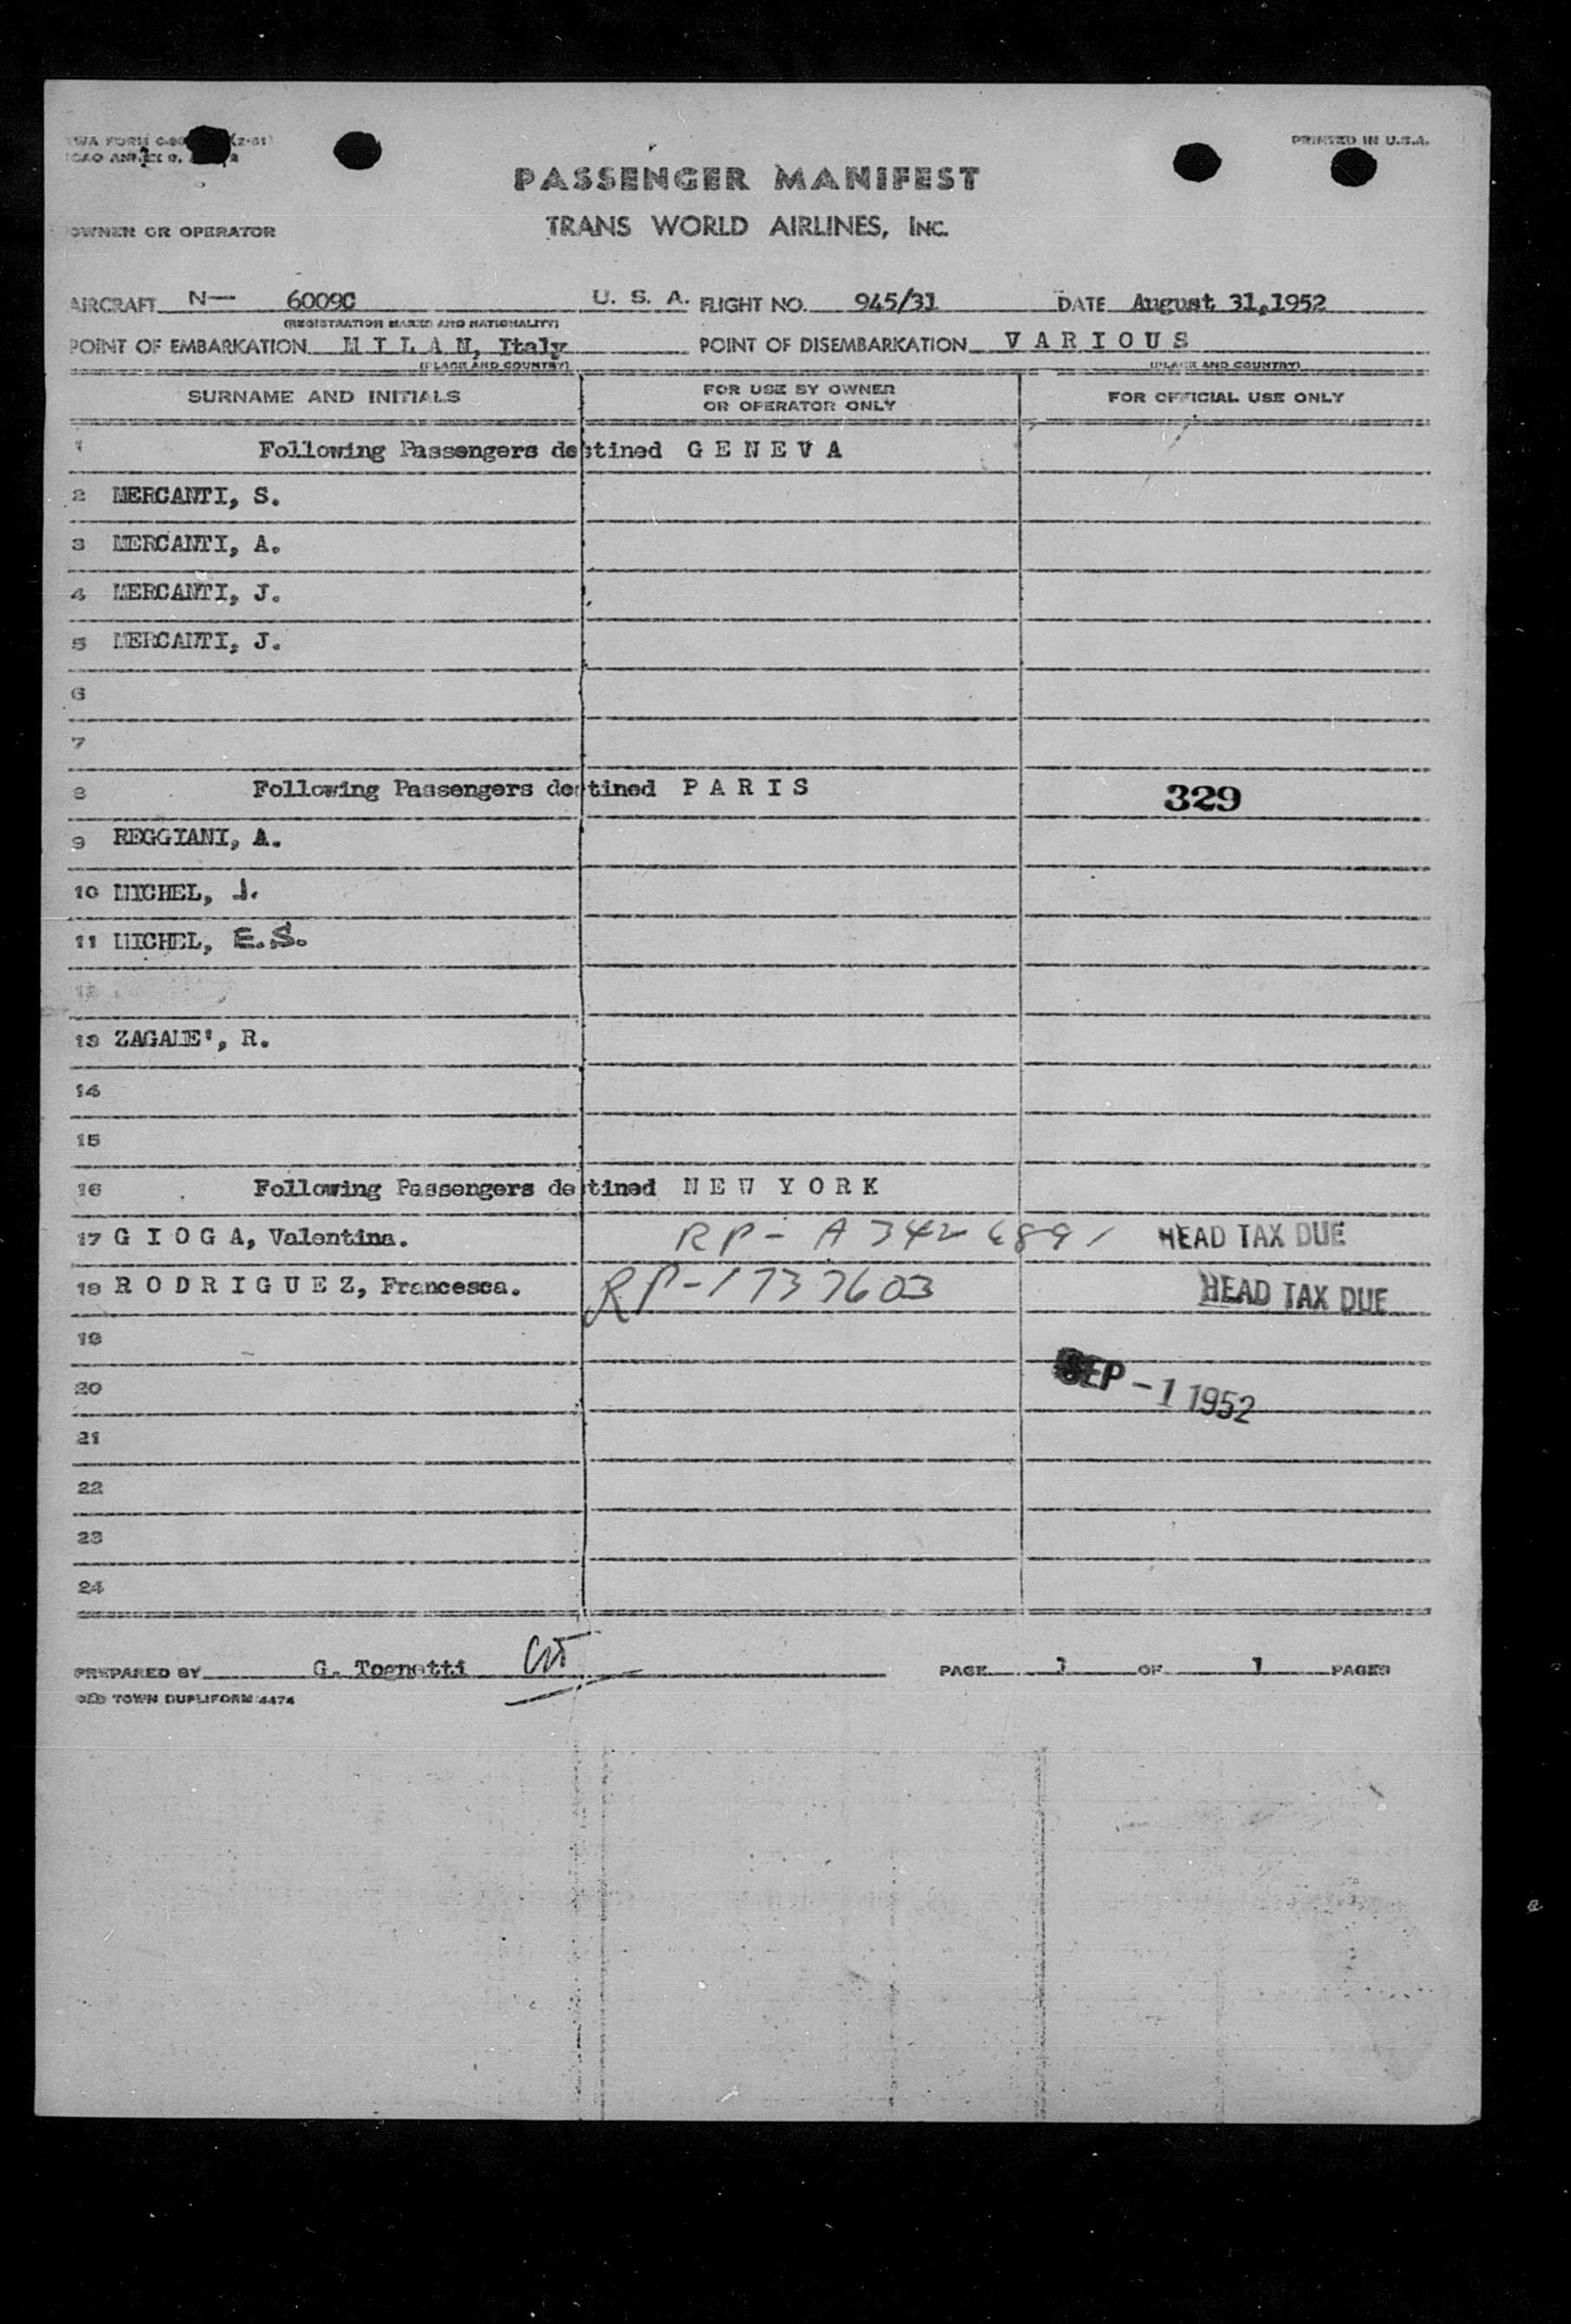 TWA FORM (2-51)
PRINTED IN U.S.A.
ICAO ANNEX 9,
PASSENGER MANIFEST
OWNER OR OPERATOR
TRANS WORLD AIRLINES, INC.
AIRCRAFT N— 6009C U. S. A. FLIGHT NO. 945/31 DATE August 31,1952
(REGISTRATION MARKS AND NATIONALITY)
POINT OF EMBARKATION M I L A N, Italy POINT OF DISEMBARKATION V A R I O U S
(PLACE AND COUNTRY) (PLACE AND COUNTRY)
SURNAME AND INITIALS FOR USE BY OWNER OR OPERATOR ONLY FOR OFFICIAL USE ONLY
1 Following Passengers destined G E N E V A
2 MERCANTI, S.
3 MERCANTI, A.
4 MERCANTI, J.
5 MERCANTI, J.
6
7
8 Following Passengers destined P A R I S 329
9 REGGIANI, A.
10 MICHEL, J.
11 MICHEL, E.S.
12
13 R.
14
15
16 Following Passengers destined N E W Y O R K
17 G I O G A, Valentina. RP- A HEAD TAX DUE
18 R O D R I G U E Z, Francesca. RP-1737603 HEAD TAX DUE
19
20 SEP -1 1952
21
22
23
24
PREPARED BY G. Tognetti PAGE 1 OF 1 PAGES
OLD TOWN DUPLIFORM 4474